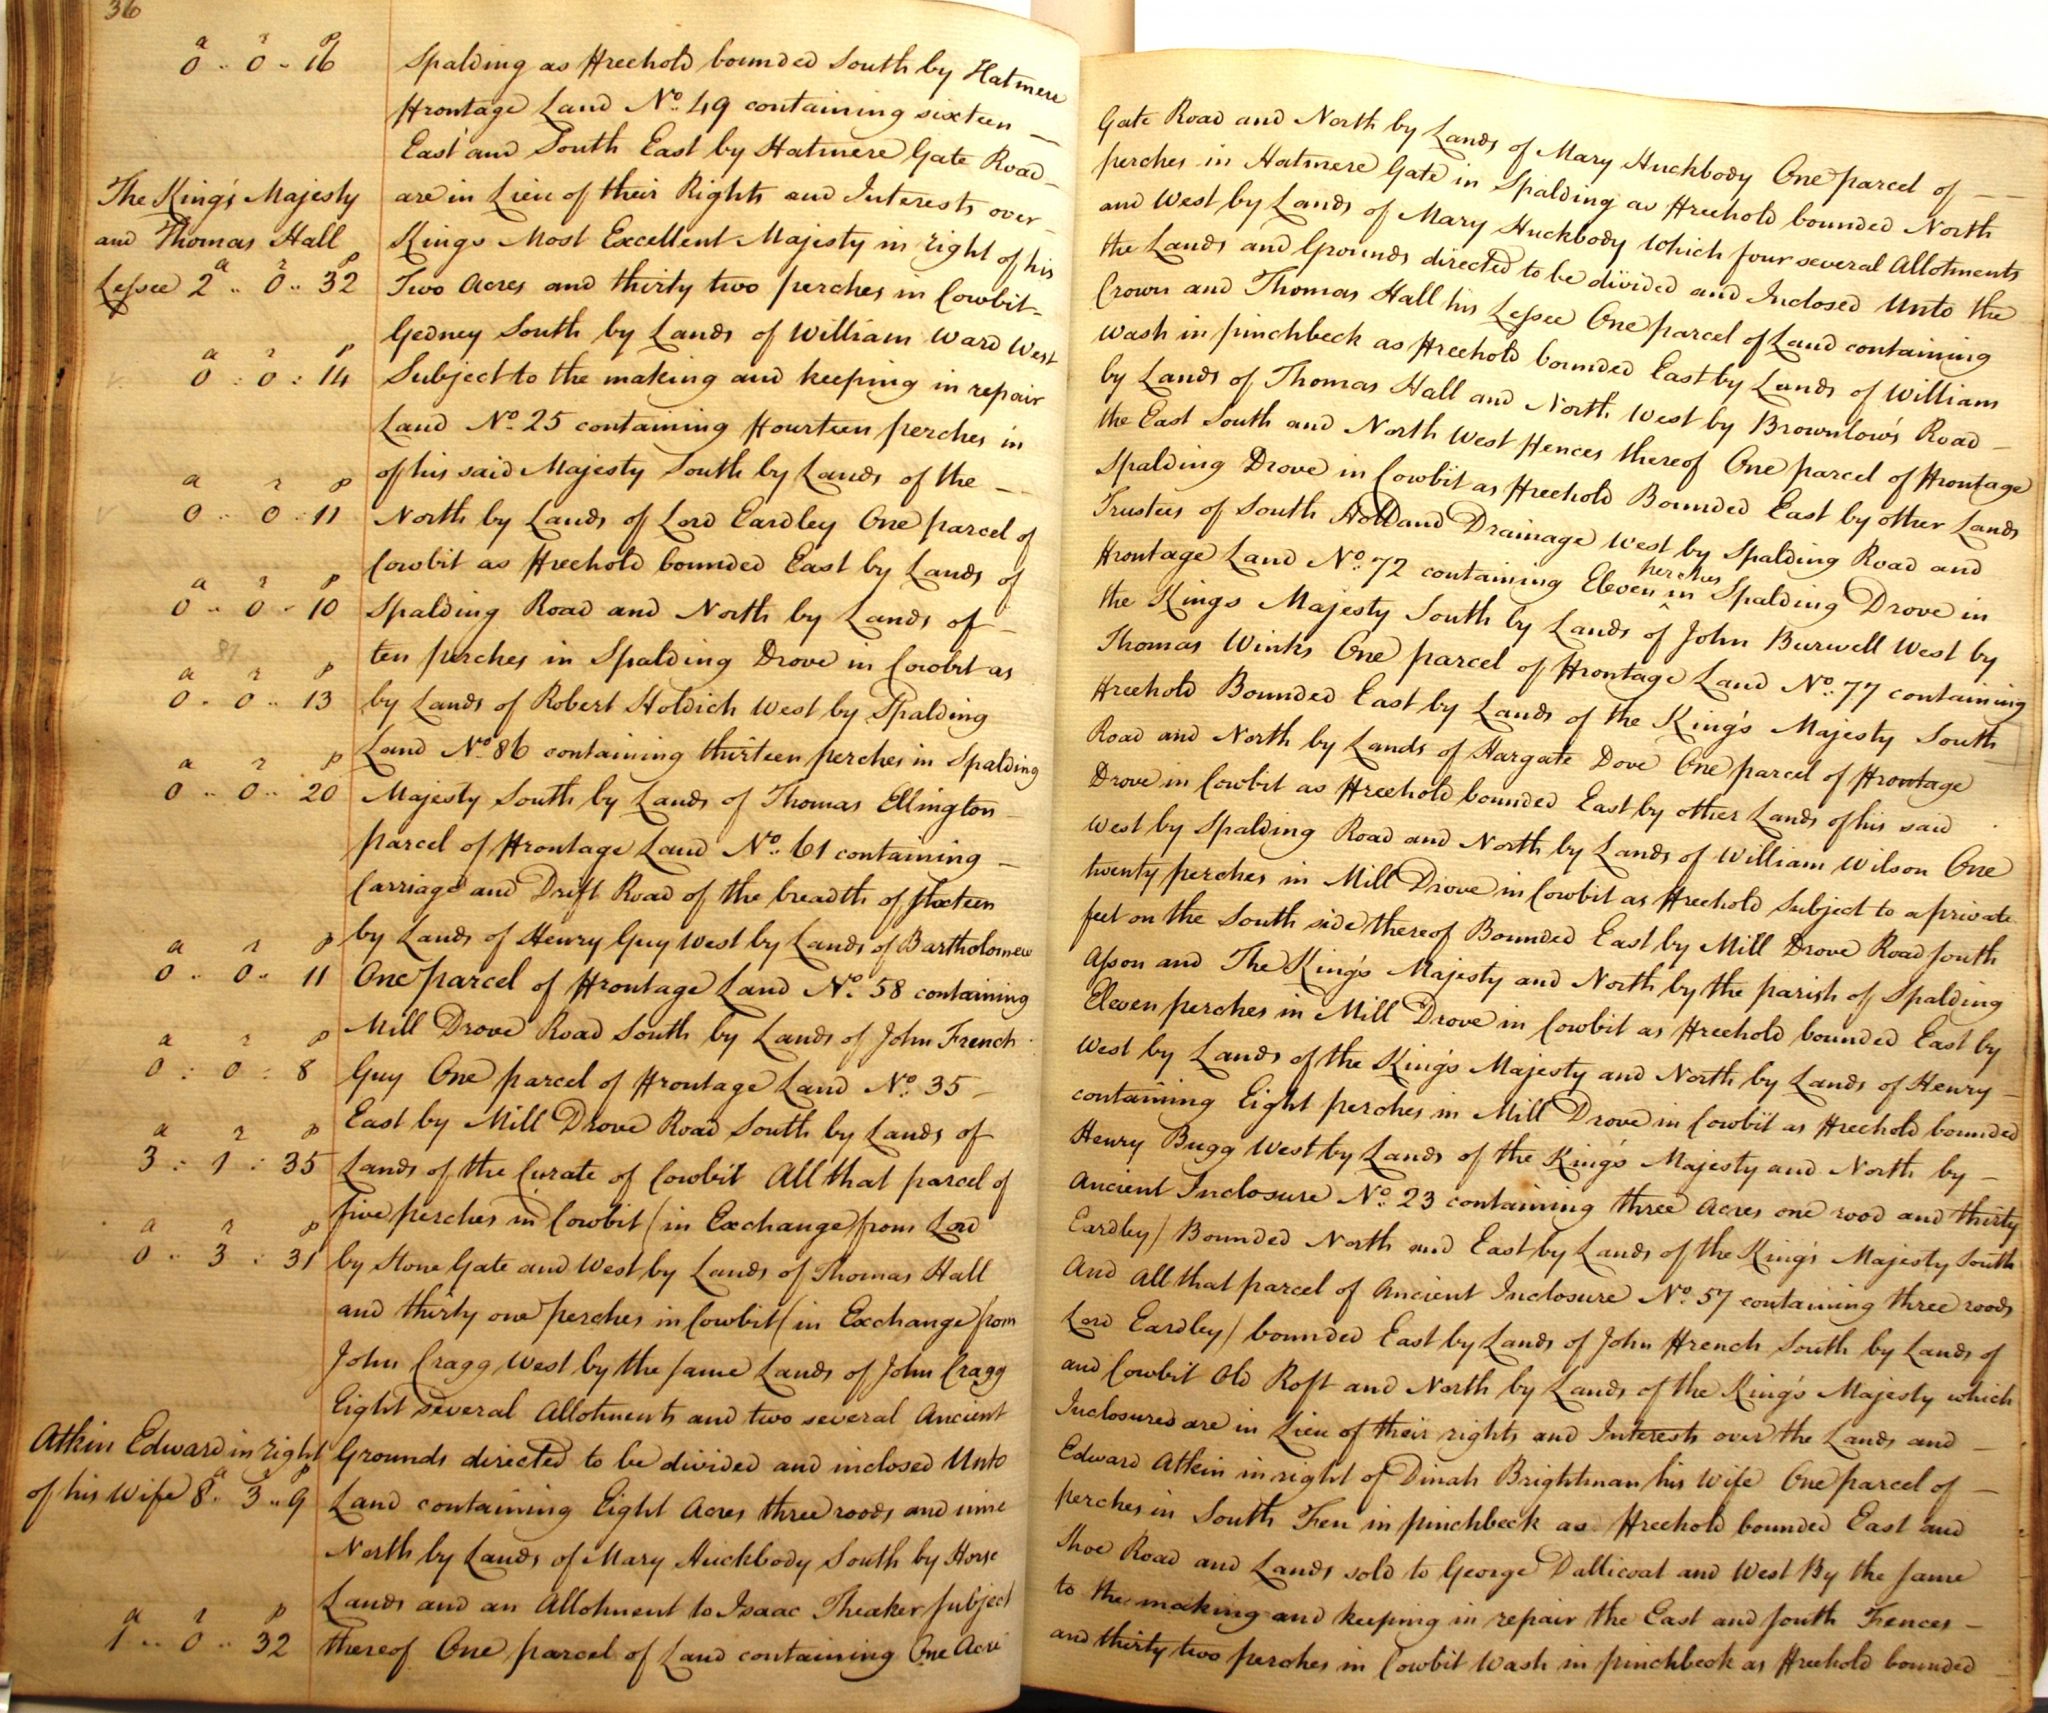 36
a r p
0 .. 0 .. 16 Spalding as Freehold bounded South by Hatmere Gate Road and North by Lands of Mary Huckbody One parcel of —
Frontage Land No. 49 containing sixteen — perches in Hatmere Gate in Spalding as Freehold bounded North
East and South East by Hatmere Gate Road — and West by Lands of Mary Huckbody Which four several Allotments
The King's Majesty are in Lieu of their Rights and Interests over — the Lands and Grounds directed to be divided and Inclosed Unto the
and Thomas Hall Kings Most Excellent Majesty in right of his Crown and Thomas Hall his Lessee One parcel of Land containing
a r p
Lessee 2 .. 0 .. 32 Two Acres and thirty two perches in Cowbit — Wash in pinchbeck as Freehold bounded East by Lands of William
Gedney South by Lands of William Ward West by Lands of Thomas Hall and North West by Brownlow's Road —
a r p
0 : 0 : 14 Subject to the making and keeping in repair the East South and North West Fences thereof One parcel of Frontage
Land No. 25 containing Fourteen perches in Spalding Drove in Cowbit as Freehold Bounded East by other Lands
of his said Majesty South by Lands of the — Trustees of South Holland Drainage West by Spalding Road and
a r p
0 .. 0 : 11 North by Lands of Lord Eardley One parcel of Frontage Land No. 72 containing Eleven perches in Spalding Drove in
Cowbit as Freehold bounded East by Lands of the Kings Majesty South by Lands of John Burwell West by
a r p
0 .. 0 .. 10 Spalding Road and North by Lands of — Thomas Winks One parcel of Frontage Land No. 77 containing
ten perches in Spalding Drove in Cowbit as Freehold Bounded East by Lands of the King's Majesty South
a r p
0 .. 0 .. 13 by Lands of Robert Holdich West by Spalding Road and North by Lands of Hargate Dove One parcel of Frontage
Land No. 86 containing thirteen perches in Spalding Drove in Cowbit as Freehold bounded East by other Lands of his said
a r p
0 .. 0 .. 20 Majesty South by Lands of Thomas Ellington — West by Spalding Road and North by Lands of William Wilson One
parcel of Frontage Land No. 61 containing — twenty perches in Mill Drove in Cowbit as Freehold Subject to a private
Carriage and Drift Road of the breadth of sixteen feet on the South side thereof Bounded East by Mill Drove Road South
by Lands of Henry Guy West by Lands of Bartholomew Apson and The King's Majesty and North by the parish of Spalding
a r p
0 .. 0 .. 11 One parcel of Frontage Land No. 58 containing Eleven perches in Mill Drove in Cowbit as Freehold bounded East by
Mill Drove Road South by Lands of John French West by Lands of the King's Majesty and North by Lands of Henry —
a r p
0 : 0 : 8 Guy One parcel of Frontage Land No. 35 — containing Eight perches in Mill Drove in Cowbit as Freehold bounded
East by Mill Drove Road South by Lands of Henry Bugg West by Lands of the King's Majesty and North by —
a r p
3 : 1 : 35 Lands of the Curate of Cowbit All that parcel of Ancient Inclosure No. 23 containing three Acres one rood and thirty
five perches in Cowbit (in Exchange from Lord Eardley) Bounded North and East by Lands of the King's Majesty South
a r p
0 .. 3 : 31 by Stone Gate and West by Lands of Thomas Hall And All that parcel of Ancient Inclosure No. 57 containing three roods
and thirty one perches in Cowbit (in Exchange from Lord Eardley) bounded East by Lands of John French South by Lands of
John Cragg West by the same Lands of John Cragg and Cowbit Old Roft and North by Lands of the King's Majesty which
Eight several Allotments and two several Ancient Inclosures are in Lieu of their rights and Interests over the Lands and —
Atkin Edward in right Grounds directed to be divided and inclosed Unto Edward Atkin in right of Dinah Brightman his Wife One parcel of —
a p
of his Wife 8 .. 3 .. 9 Land containing Eight Acres three roods and nine perches in South Fen in pinchbeck as Freehold bounded East and
North by Lands of Mary Huckbody South by Horse Shoe Road and Lands sold to George Dallicoat and West By the same
Lands and an Allotment to Isaac Theaker subject to the making and keeping in repair the East and South Fences —
a r p
1 .. 0 .. 32 thereof One parcel of Land containing One Acre and thirty two perches in Cowbit Wash in pinchbeck as Freehold bounded —